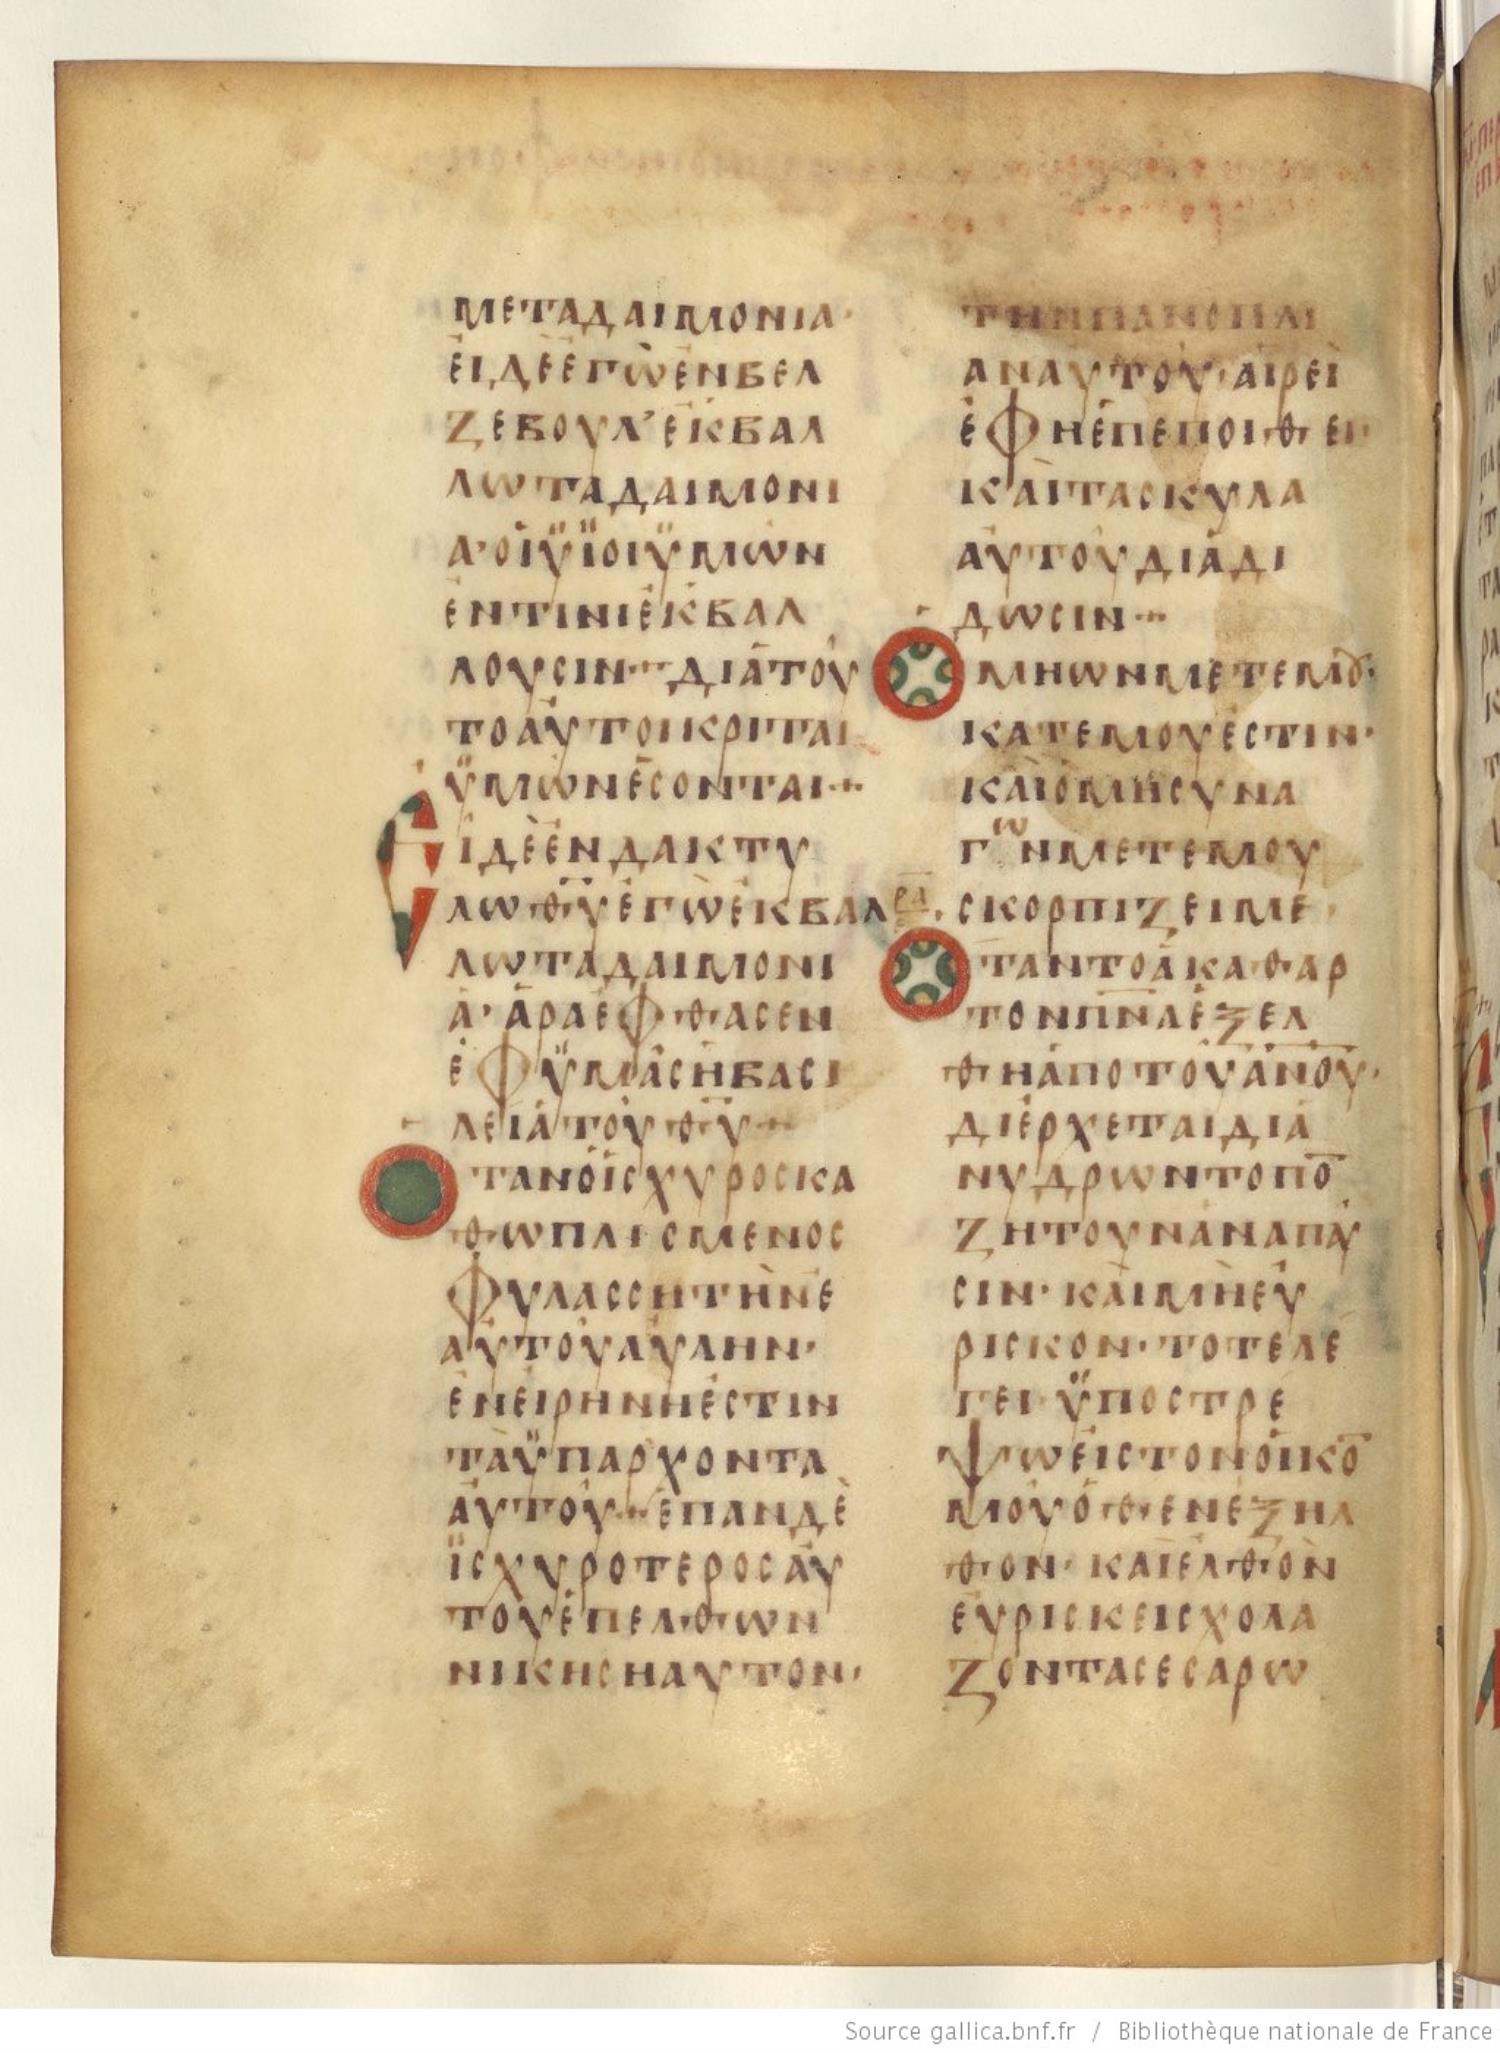 ΜΕΤΑΔΑΙΜΟΝΙΑ·
ΕΙΔΕΕΓΩΕΝΒΕΛ
ΖΕΒΟΥΛ᾽ΕΚΒΑΛ
ΛΩΤΑΔΑΙΜΟΝΙ
Α·ΟΙΫΪΟΙΫΜΩΝ
ΕΝΤΙΝΙΕΚΒΑΛ
ΛΟΥΣΙΝ··ΔΙΑΤΟΥ
ΤΟΑΥΤΟΙΚΡΙΤΑΙ
ΫΜΩΝΕΣΟΝΤΑΙ··
ΕΙΔΕΕΝΔΑΚΤΥ
ΛΩΘ̅Υ̅ΕΓΩΕΚΒΑΛ
ΛΩΤΑΔΑΙΜΟΝΙ
Α·ΑΡΑΕΦΘΑΣΕΝ
ΕΦΫΜΑΣΗΒΑΣΙ
ΛΕΙΑΤΟΥΘ̅Υ̅··
ΟΤΑΝΟΙΣΧΥΡΟΣΚΑ
ΘΩΠΛΙΣΜΕΝΟΣ
ΦΥΛΑΣΣΗΤΗΝΕ
ΑΥΤΟΥΑΥΛΗΝ·
ΕΝΕΙΡΗΝΗΕΣΤΙΝ
ΤΑΫΠΑΡΧΟΝΤΑ
ΑΥΤΟΥ··ΕΠΑΝΔΕ
ΪΣΧΥΡΟΤΕΡΟΣΑΥ
ΤΟΥΕΠΕΛΘΩΝ
ΝΙΚΗΣΗΑΥΤΟΝ·
ΤΗΝΠΑΝΟΠΛΙ
ΑΝΑΥΤΟΥ·ΑΙΡΕΙ
ΕΦΗΕΠΕΠΟΙΘΕΙ
ΚΑΙΤΑΣΚΥΛΑ
ΑΥΤΟΥΔΙΑΔΙ
ΔΩΣΙΝ··
ΟΜΗΩΝΜΕΤΕΜȢ·
ΚΑΤΕΜΟΥΕΣΤΙΝ·
ΚΑΙΟΜΗΣΥΝΑ
ΓΩΝΜΕΤΕΜΟΥ
ΣΚΟΡΠΙΖΕΙΜΕ·
Ρ̅Λ̅
ΟΤΑΝΤΟΑΚΑΘΑΡ
ΤΟΝΠ̅Ν̅Α̅ΕΞΕΛ
ΘΗΑΠΟΤΟΥΑ̅Ν̅Ο̅Υ̅·
ΔΙΕΡΧΕΤΑΙΔΙΑ
ΝΥΔΡΩΝΤΟΠΟ̅
ΖΗΤΟΥΝΑΝΑΠΑΥ
ΣΙΝ·ΚΑΙΜΗΕΥ
ΡΙΣΚΟΝ·ΤΟΤΕΛΕ
ΓΕΙ·ΫΠΟΣΤΡΕ
ΨΩΕΙΣΤΟΝΟΙΚΟ̅
ΜΟΥΟΘΕΝΕΞΗΛ
ΘΟΝ·ΚΑΙΕΛΘΟΝ
ΕΥΡΙΣΚΕΙΣΧΟΛΑ
ΖΟΝΤΑΣΕΣΑΡΩ
Source gallica.bnf.fr / Bibliothèque nationale de France